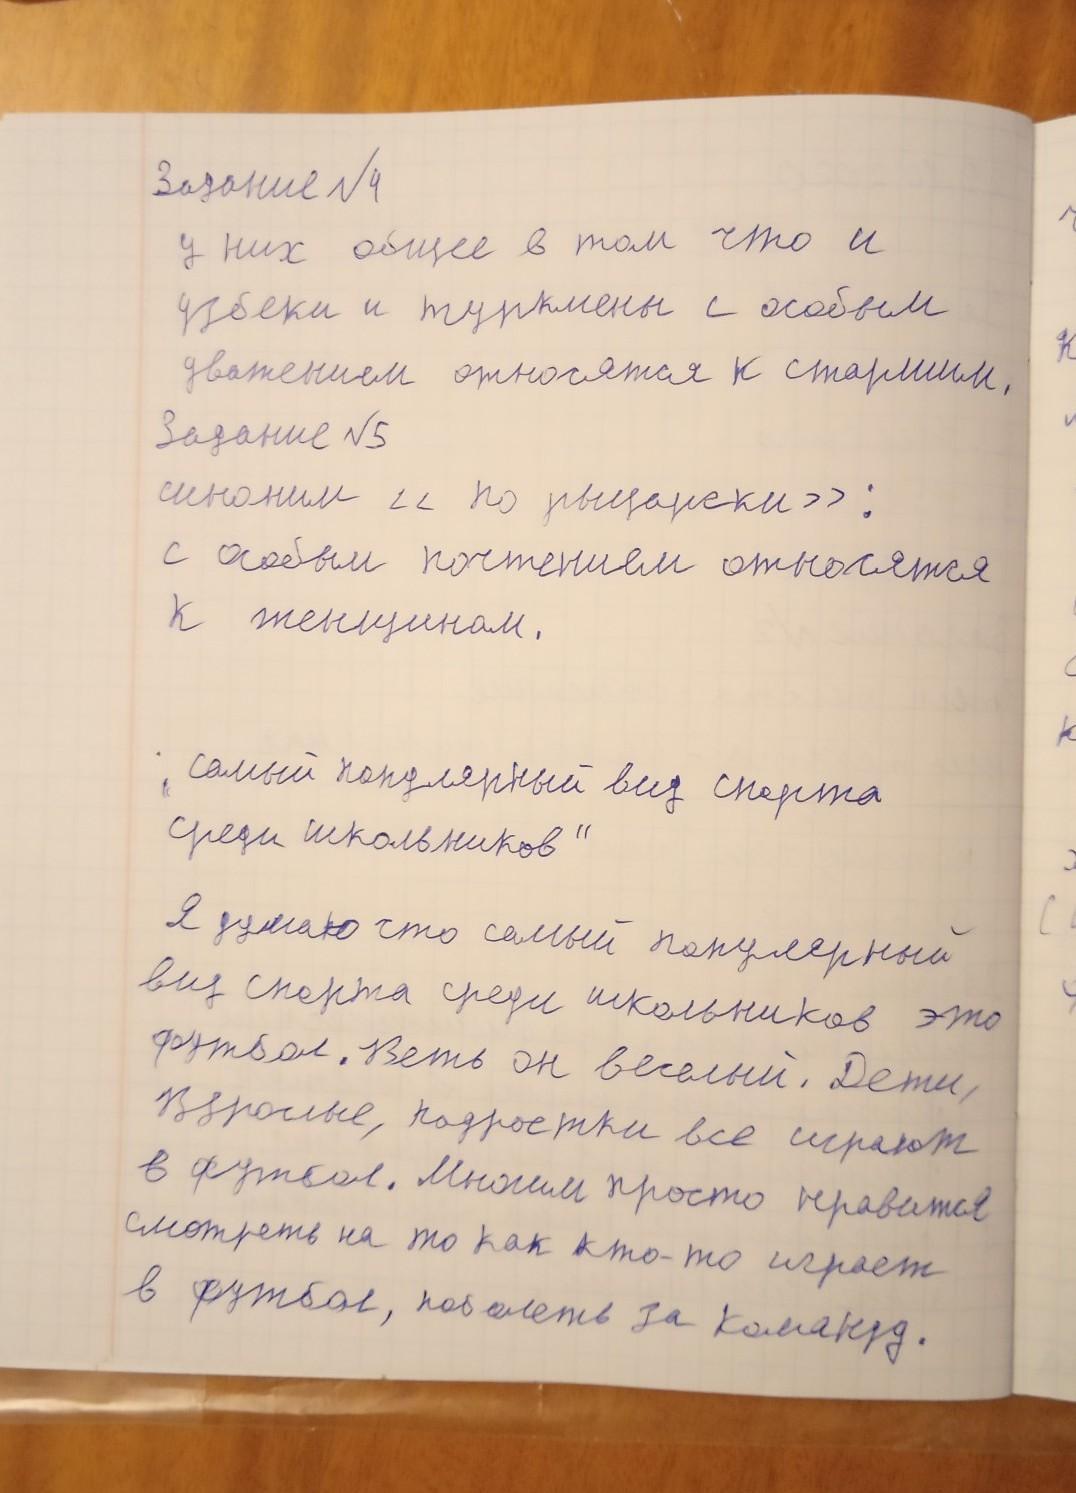 Задание №4
у них общее в том что и
узбеки и туркмены с особым
уважением относятся к старшим.
Задание №5
синоним << по рыцарски>>:
с особым почтением относятся
к женщинам.
„самый популярный вид спорта
среди школьников“
Я думаю что самый популярный
вид спорта среди школьников это
футбол. Веть он веселый. Дети,
взрослые, подростки все играют
в футбол. Многим просто нравится
смотреть на то как кто-то играет
в футбол, поболеть за команду.